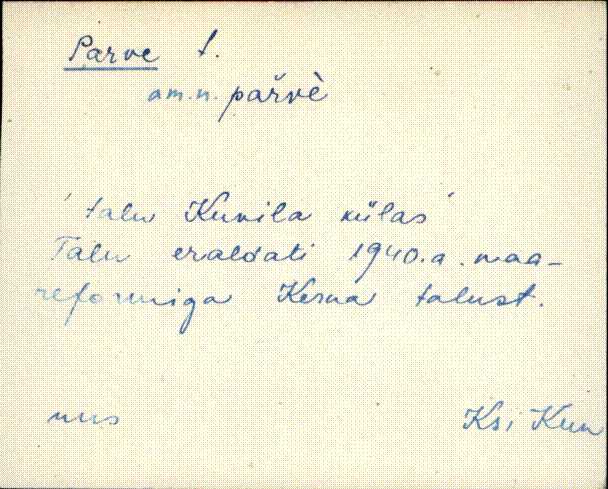 Parve t.
am.n. pařvè
'talu Kunila külas'
Talu eraldati 1940.a. maa-
reformiga Kerna talust.
Ksi Kun